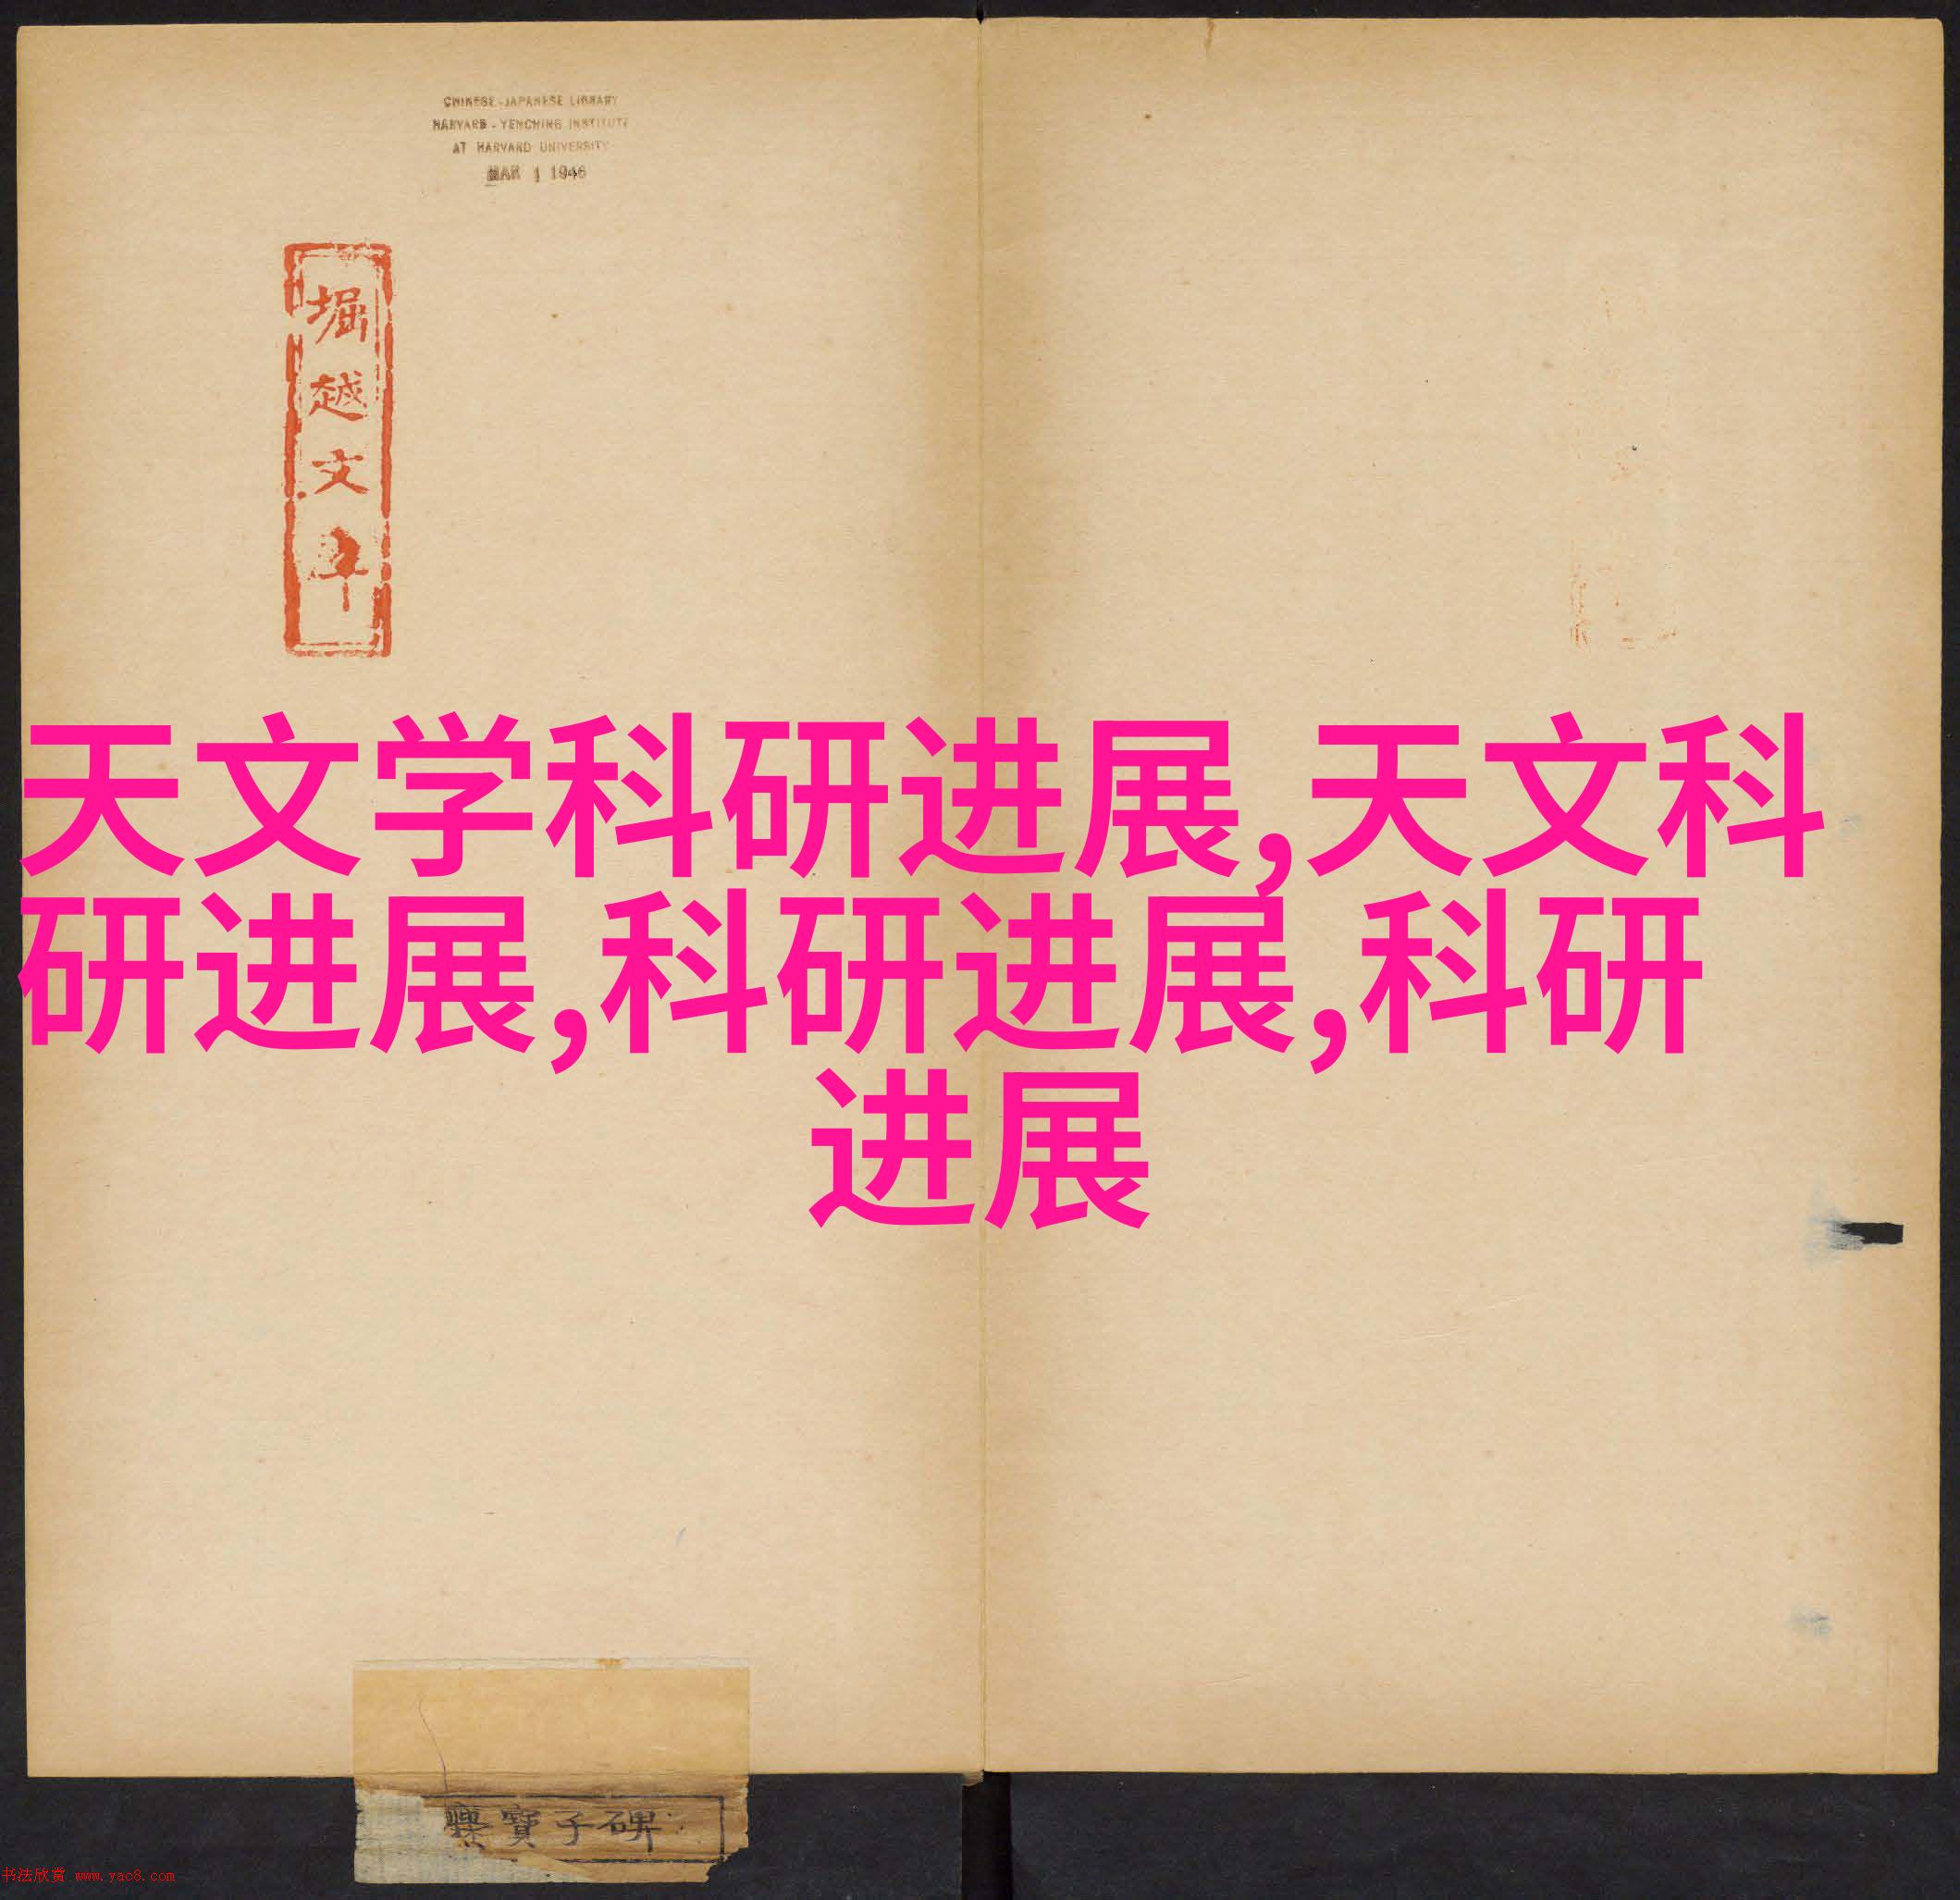 CHINESE-JAPANESE LIBRARY
HARVARD-YENCHING INSTITUTE
AT HARVARD UNIVERSITY
MAR 1 1946
堀越文
天文学科研进展,天文科
研进展,科研进展,科研
进展
爨寶子碑
书法欣赏 www.yac8.com